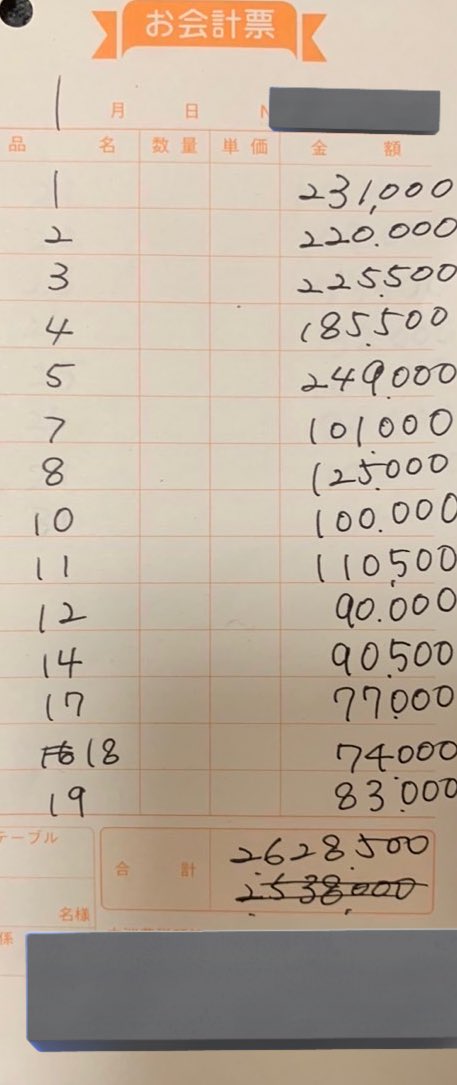 お会計票
1月 日 N
品名 数量 単価 金額
1 231,000
2 220.000
3 225.500
4 185.500
5 249.000
7 101.000
8 125.000
10 100.000
11 110,500
12 90.000
14 90.500
17 77.000
16 18 74.000
19 83.000
テーブル
合計 2.628.500
2.538.000
名様
係